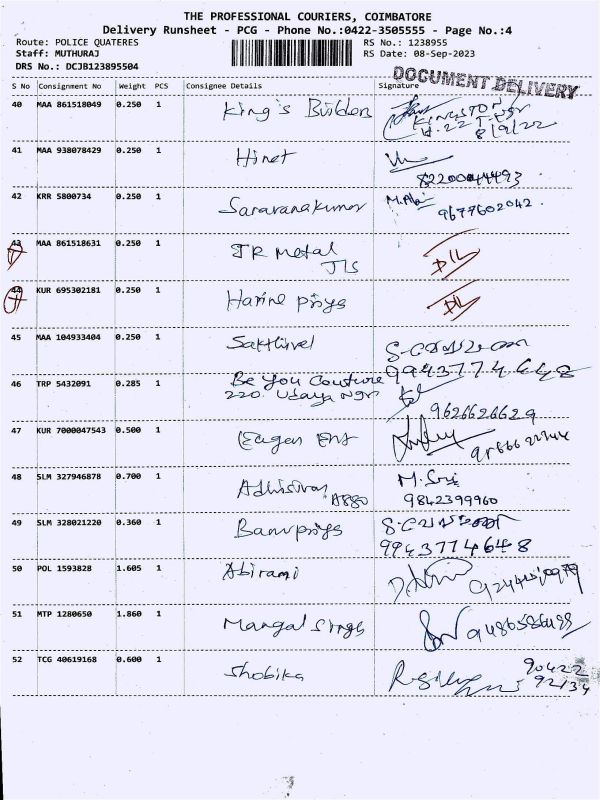 THE PROFESSIONAL COURIERS, COIMBATORE
Delivery Runsheet - PCG - Phone No.:0422-3505555 - Page No.:4
Route: POLICE QUATERES RS No.: 1238955
Staff: MUTHURAJ RS Date: 08-Sep-2023
DRS No.: DCJB123895504
DOCUMENT DELIVERY
S No Consignment No Weight PCS Consignee Details Signature
40 MAA 861518049 0.250 1 King's Builders KINGSTON
8/9/22
41 MAA 938078429 0.250 1 Hinet
8220044493
42 KRR 5800734 0.250 1 Saravanakumar
9677602042
43 MAA 861518631 0.250 1 JR Metal
44 KUR 695302181 0.250 1 Harine Priya
45 MAA 104933404 0.250 1 Sakthivel
9943774648
46 TRP 5432091 0.285 1 Be You Couture
220. Udaya Ngr
9626626629
47 KUR 7000047543 0.500 1
48 SLM 327946878 0.700 1
9842399960
49 SLM 328021220 0.360 1 Banupriya
9943774648
50 POL 1593828 1.605 1 Abirami
51 MTP 1280650 1.860 1 Mangal Singh
52 TCG 40619168 0.600 1 Shobika 90422
92134